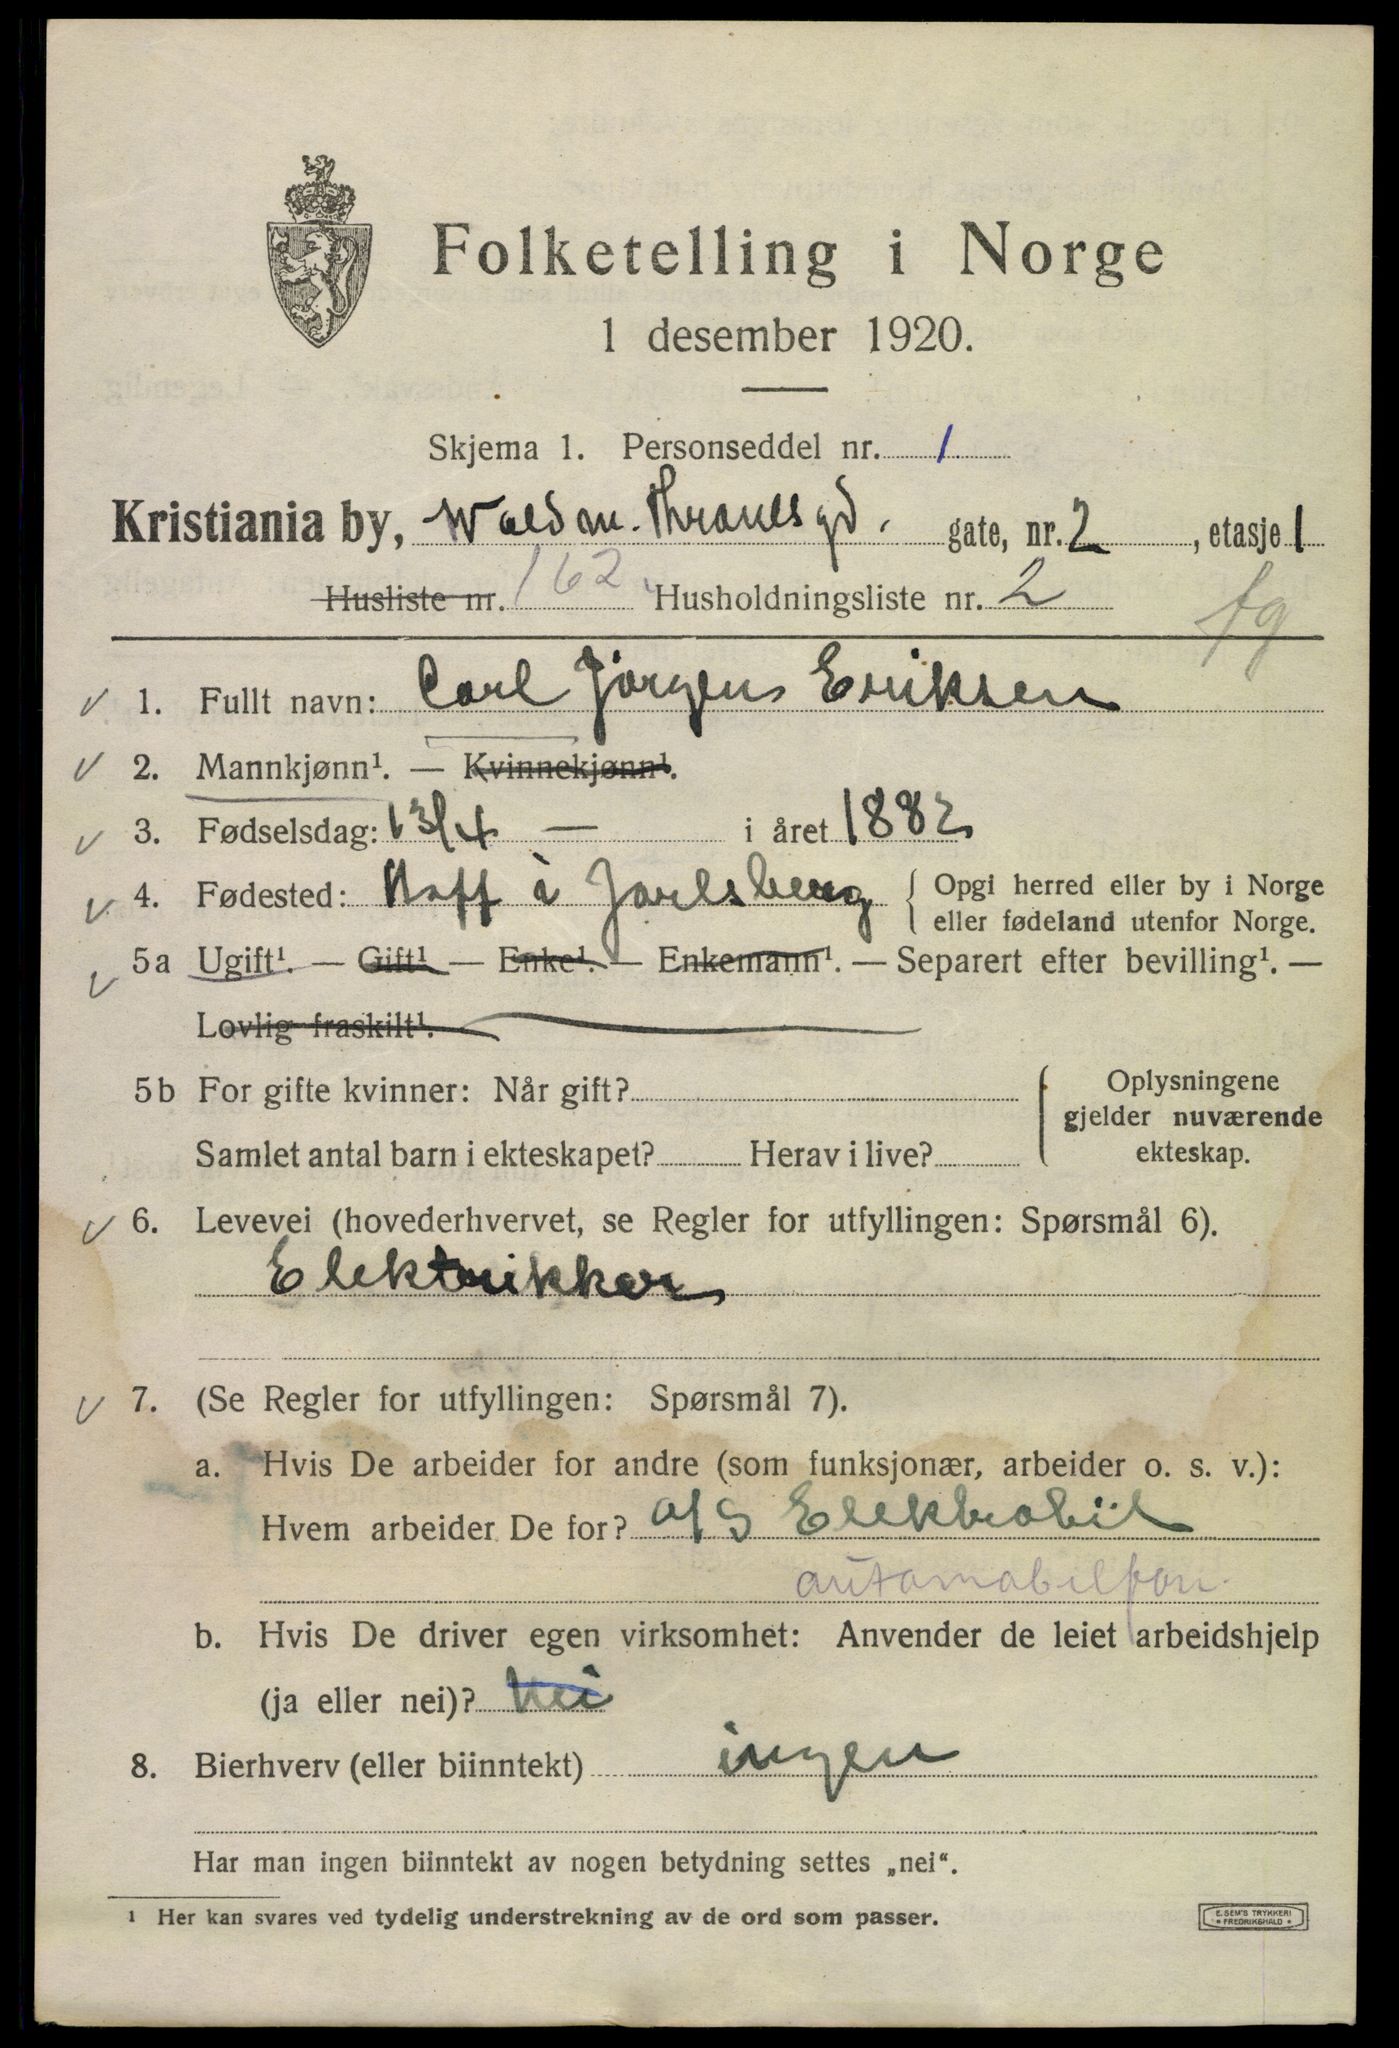 Folketelling i Norge
1 desember 1920.
Skjema 1. Personseddel nr. 1
Kristiania by, Waldm. Thranesgd. gate, nr. 2, etasje 1
Husliste nr. 162. Husholdningsliste nr. 2
fg
1. Fullt navn: Carl Jørgens Eriksen
2. Mannkjønn¹. — Kvinnekjønn¹.
3. Fødselsdag: 13/4 — i året 1882
4. Fødested: Hoff à Jarlsberg { Opgi herred eller by i Norge
eller fødeland utenfor Norge.
5a Ugift¹. — Gift¹ — Enke¹. — Enkemann¹. — Separert efter bevilling¹. —
Lovlig fraskilt¹.
5b For gifte kvinner: Når gift? { Oplysningene
gjelder nuværende
Samlet antal barn i ekteskapet? Herav i live? ekteskap.
6. Levevei (hovederhvervet, se Regler for utfyllingen: Spørsmål 6).
Elektrikker
7. (Se Regler for utfyllingen: Spørsmål 7).
a. Hvis De arbeider for andre (som funksjonær, arbeider o. s. v.):
Hvem arbeider De for? A/S Elektrobil
automobilforr.
b. Hvis De driver egen virksomhet: Anvender de leiet arbeidshjelp
(ja eller nei)? Nei
8. Bierhverv (eller biinntekt) ingen
Har man ingen biinntekt av nogen betydning settes „nei“.
¹ Her kan svares ved tydelig understrekning av de ord som passer.
E. SEM'S TRYKKERI
FREDRIKSHALD